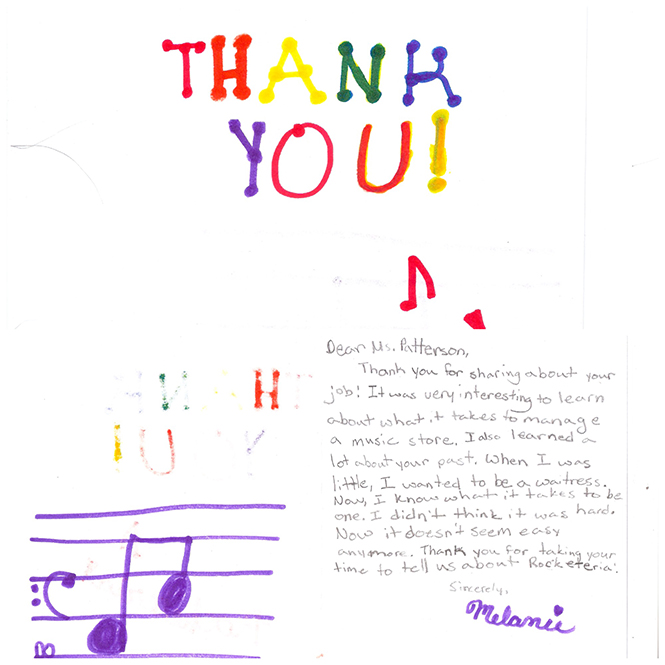 THANK
YOU!
Dear Ms. Patterson,
Thank you for sharing about your
job! It was very interesting to learn
about what it takes to manage
a music store. I also learned a
lot about your past. When I was
little, I wanted to be a waitress.
Now, I know what it takes to be
one. I didn't think it was hard.
Now it doesn't seem easy
anymore. Thank you for taking your
time to tell us about Rocketeria.
Sincerely,
Melanie